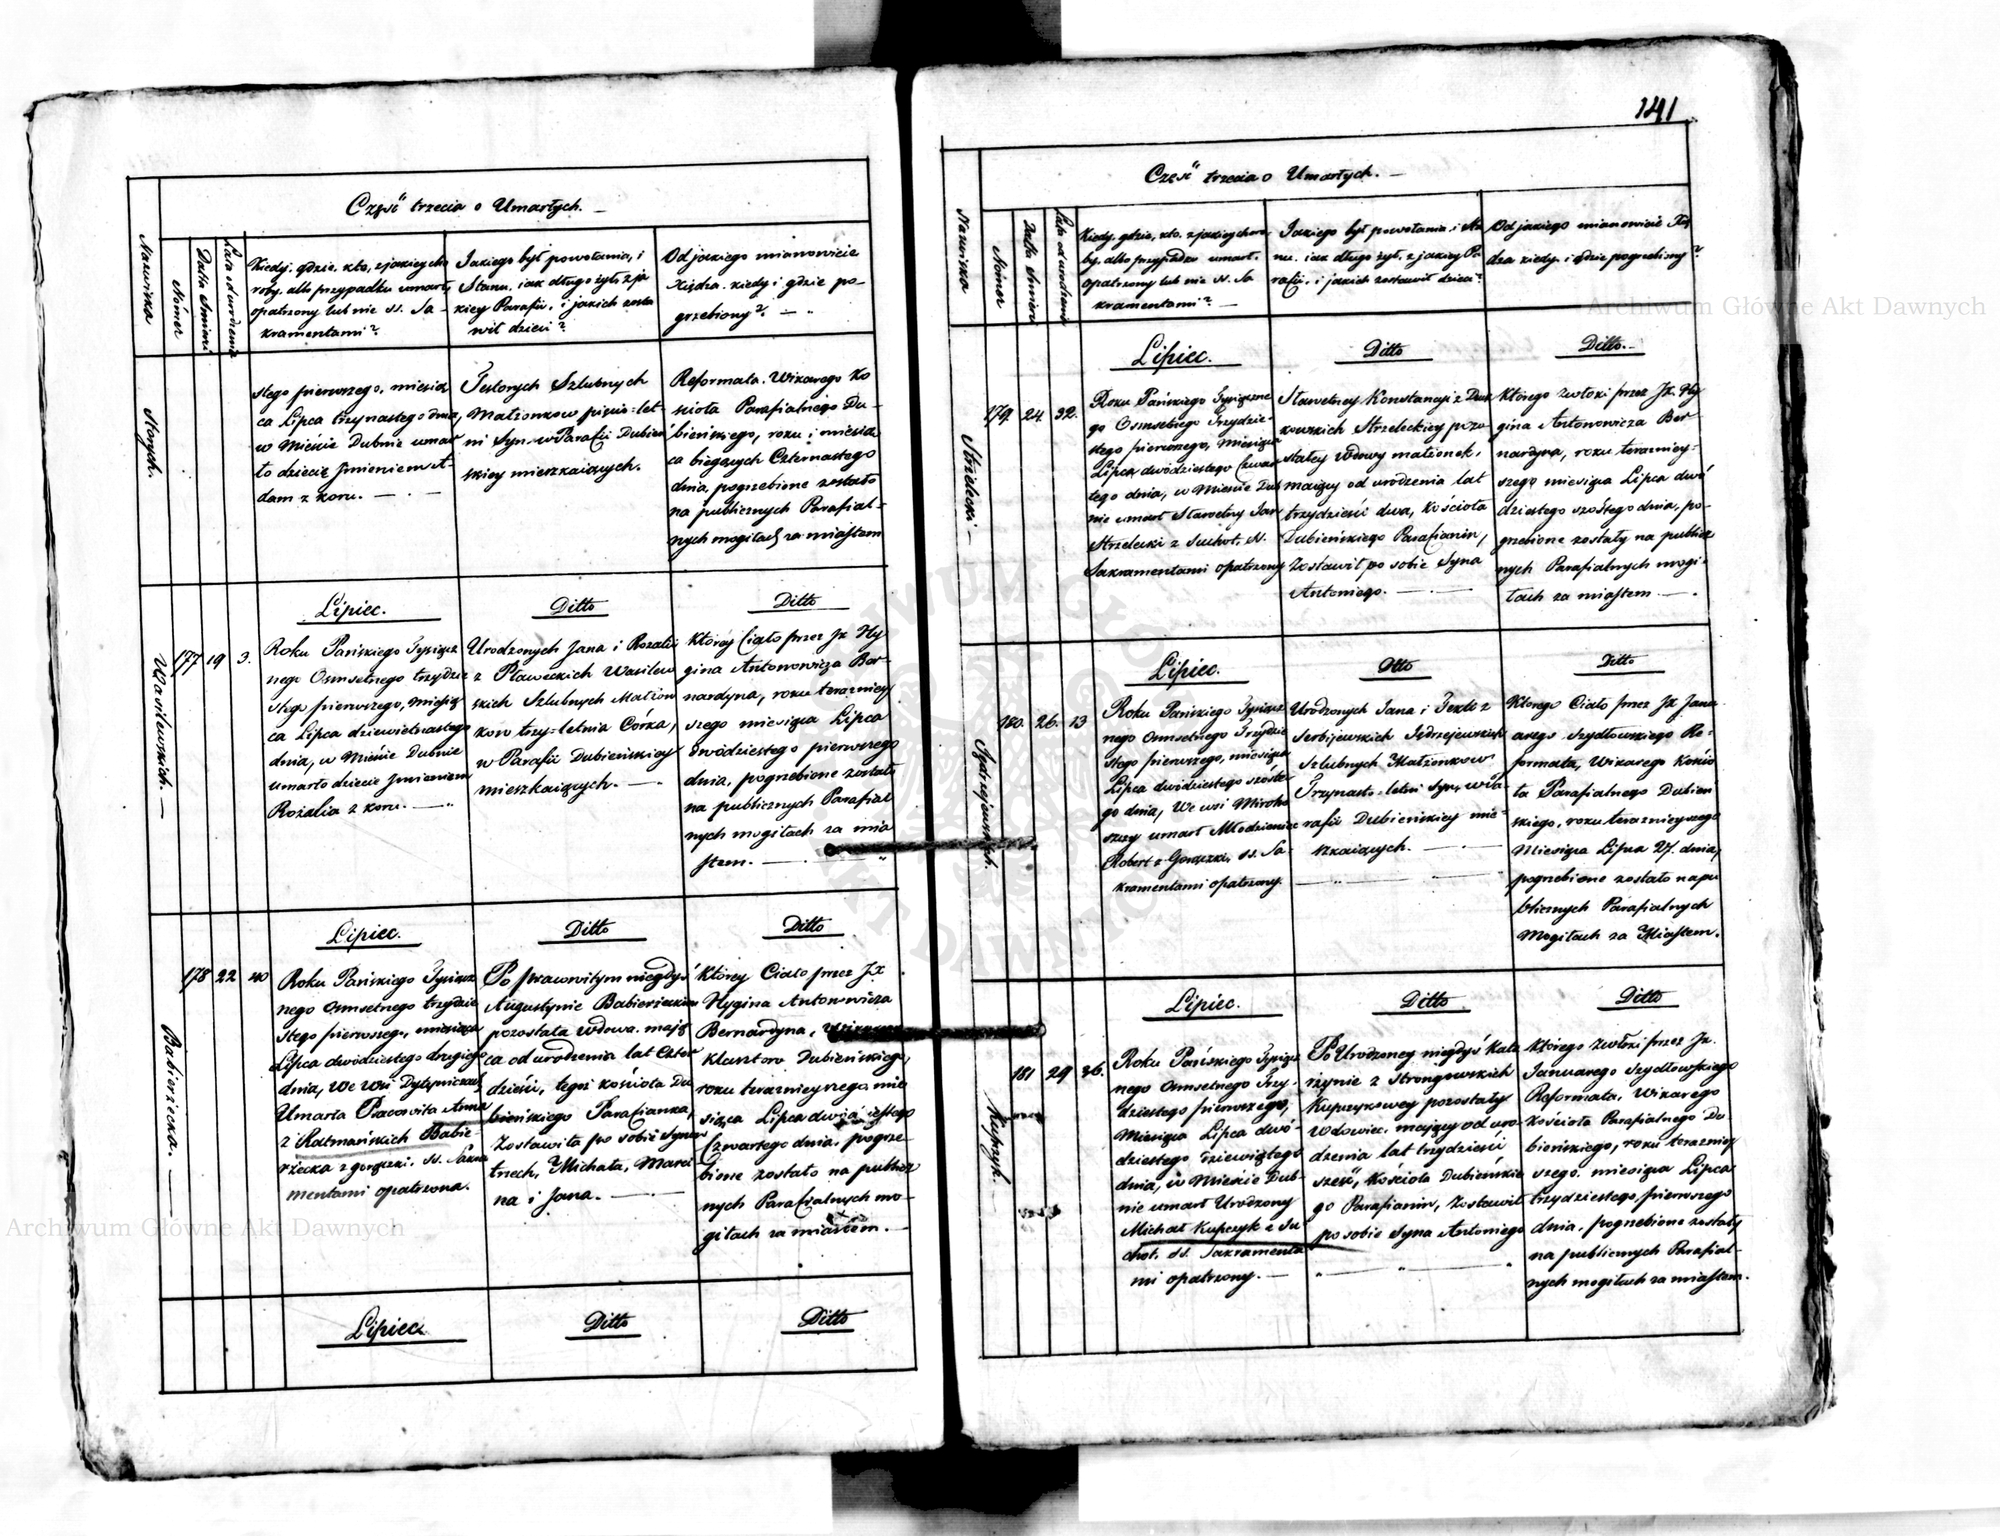 Część trzecia o Umarłych. —
Nazwiska
Nómer
Datta śmierci
Lata od urodzenia
Kiedy, gdzie, kto, z jakiey cho
roby, albo przypadku umarł,
opatrzony lub nie SS. Sa-
kramentami?
Jakiego był powołania, i
Stanu, iak długo żył, z ja
kiey Parafii, i jakich zosta
wił dzieci?
Od jakiego mianowicie
Xiędza, kiedy i gdzie po-
grzebiony? —
stego pierwszego, miesią
ca Lipca trzynastego dnia,
w Mieście Dubnie umar
ło dziecię Jmieniem A-
dam z koru. — . —
Szlubnych
Małżonkow pięcio-let-
ni Syn w Parafii Dubien
skiey mieszkaiących.
Reformata, Wikarego Ko
scioła Parafialnego Du-
bieńskiego, roku i miesią
ca bieżących Czternastego
dnia, pogrzebione zostało
na publicznych Parafial-
nych mogiłach za miastem
Lipiec.
Ditto
Ditto
Wasilewskich. —
177
19
3.
Roku Pańskiego Tysiącz
nego Osmsetnego trzydzie
stego pierwszego, miesią
ca Lipca dziewietnastego
dnia, w Mieście Dubnie
umarło dziecie Jmieniem
Rozalia z koru. —
Urodzonych Jana i Rozalii
z Pławeckich Wasilew
skich Szlubnych Małżon
kow trzy-letnia Córka,
w Parafii Dubieńskiey
mieszkaiących. —
Którey Ciało przez Jx Hy
gina Antonowicza Ber-
nardyna, roku teraźniey
szego miesiąca Lipca
dwódziestego pierwszego
dnia, pogrzebione zostało
na publicznych Parafial
nych mogiłach za mia
stem. —
Lipiec.
Ditto
Ditto
Babierzecka. —
178
22
40
Roku Pańskiego Tysiącz
nego Osmsetnego trzydzie
stego pierwszego, miesiąca
Lipca dwódziestego drugiego
dnia, We Wsi
Umarła Pracowita Anna
z Ratmańskich Babie-
rzecka z gorączki, SS. Sakra
mentami opatrzona.
Po pracowitym niegdyś
Augustynie Babierzeckim
pozostała Wdowa, mają
ca od urodzenia lat Czter
dzieści, tegoż kościoła Du
bieńskiego Parafianka,
Zostawiła po sobie Synow
trzech, Michała, Marci
na i Jana. —
Którey Ciało przez Jx
Hygina Antonowicza
Bernardyna,
Klasztoru Dubieńskiego,
roku teraznieyszego mie
siąca Lipca dwódziestego
Czwartego dnia, pogrze-
bione zostało na publicz
nych Parafialnych mo-
giłach za miastem. —
Lipiec
Ditto
Ditto
141
Część trzecia o Umarłych. —
Nazwiska
Nómer
Datta śmierci
Lata od urodzenia
Kiedy, gdzie, kto, z jakiey cho
roby, albo przypadku umarł,
opatrzony lub nie SS. Sa
kramentami? —
Jakiego był powołania, i Sta
nu, iak długo żył, z jakiey Pa
rafii, i jakich zostawił dzieci?
Od jakiego mianowicie Xię
dza kiedy, i gdzie pogrzebiony?
Lipiec.
Ditto
Ditto. —
Strzelecki. —
179.
24.
32.
Roku Pańskiego Tysiączne
go Osmsetnego Trzydzie
stego pierwszego, miesiąca
Lipca dwódziestego Czwar
tego dnia, w Mieście Dub
nie umarł Sławetny Jan
Strzelecki z Suchot, SS.
Sakramentami opatrzony
Sławetney Konstancyi z
Strzeleckiey pozo
stałey Wdowy małżonek,
maiący od urodzenia lat
trzydzieści dwa, Kościoła
Dubieńskiego Parafianin,
Zostawił po sobie Syna
Antoniego. —
Którego zwłoki przez Jx. Hy
gina Antonowicza Ber-
nardyna, roku teraźniey-
szego miesiąca Lipca dwó
dziestego szóstego dnia, po-
grzebione zostały na publicz
nych Parafialnych mogi-
łach za miastem. —
Lipiec.
Ditto
Ditto
Jędrzejewskich.
180.
26.
13
Roku Pańskiego Tysiącz
nego Osmsetnego Trzydzie
stego pierwszego, miesiąca
Lipca dwódziestego szóste-
go dnia, We wsi
umarł Młodzieniec
Robert z Gorączki, SS. Sa-
kramentami opatrzony.
Urodzonych Jana i Tekli z
Serbijewskich Jędrzejewskich
Szlubnych Małżonkow
Trzynasto-letni Syn, w Pa
rafii Dubieńskiey mie-
szkaiących. —
Ktorego Ciało przez Jx Janu
arego Szydłowskiego Re-
formata, Wikarego Kościo
ła Parafialnego Dubien
skiego, roku teraznieyszego
Miesiąca Lipca 27. dnia,
pogrzebione zostało na pu
blicznych Parafialnych
Mogiłach za Miastem.
Lipiec.
Ditto
Ditto
Kupczyk. —
181
29
36.
Roku Pańskiego Tysiącz
nego Osmsetnego Trzy-
dziestego pierwszego,
Miesiąca Lipca dwó-
dziestego dziewiątego
dnia, w Mieście Dub-
nie umarł Urodzony
Michał Kupczyk z Su
chot, SS. Sakramenta
mi opatrzony. —
Po Urodzoney niegdyś Kata
rzynie z Strongowskich
Kupczykowey pozostały
Wdowiec, maiący od uro-
dzenia lat trzydzieści
sześć, Kościoła Dubieńskie
go Parafianin, Zostawił
po sobie Syna Antoniego
Którego zwłoki przez Jx.
Januarego Szydłowskiego
Reformata, Wikarego
kościoła Parafialnego Du
bieńskiego, roku teraźniey
szego, miesiąca Lipca
trzydziestego pierwszego
dnia, pogrzebione zostały
na publicznych Parafial-
nych mogiłach za miastem.
Archiwum Główne Akt Dawnych
Archiwum Główne Akt Dawnych